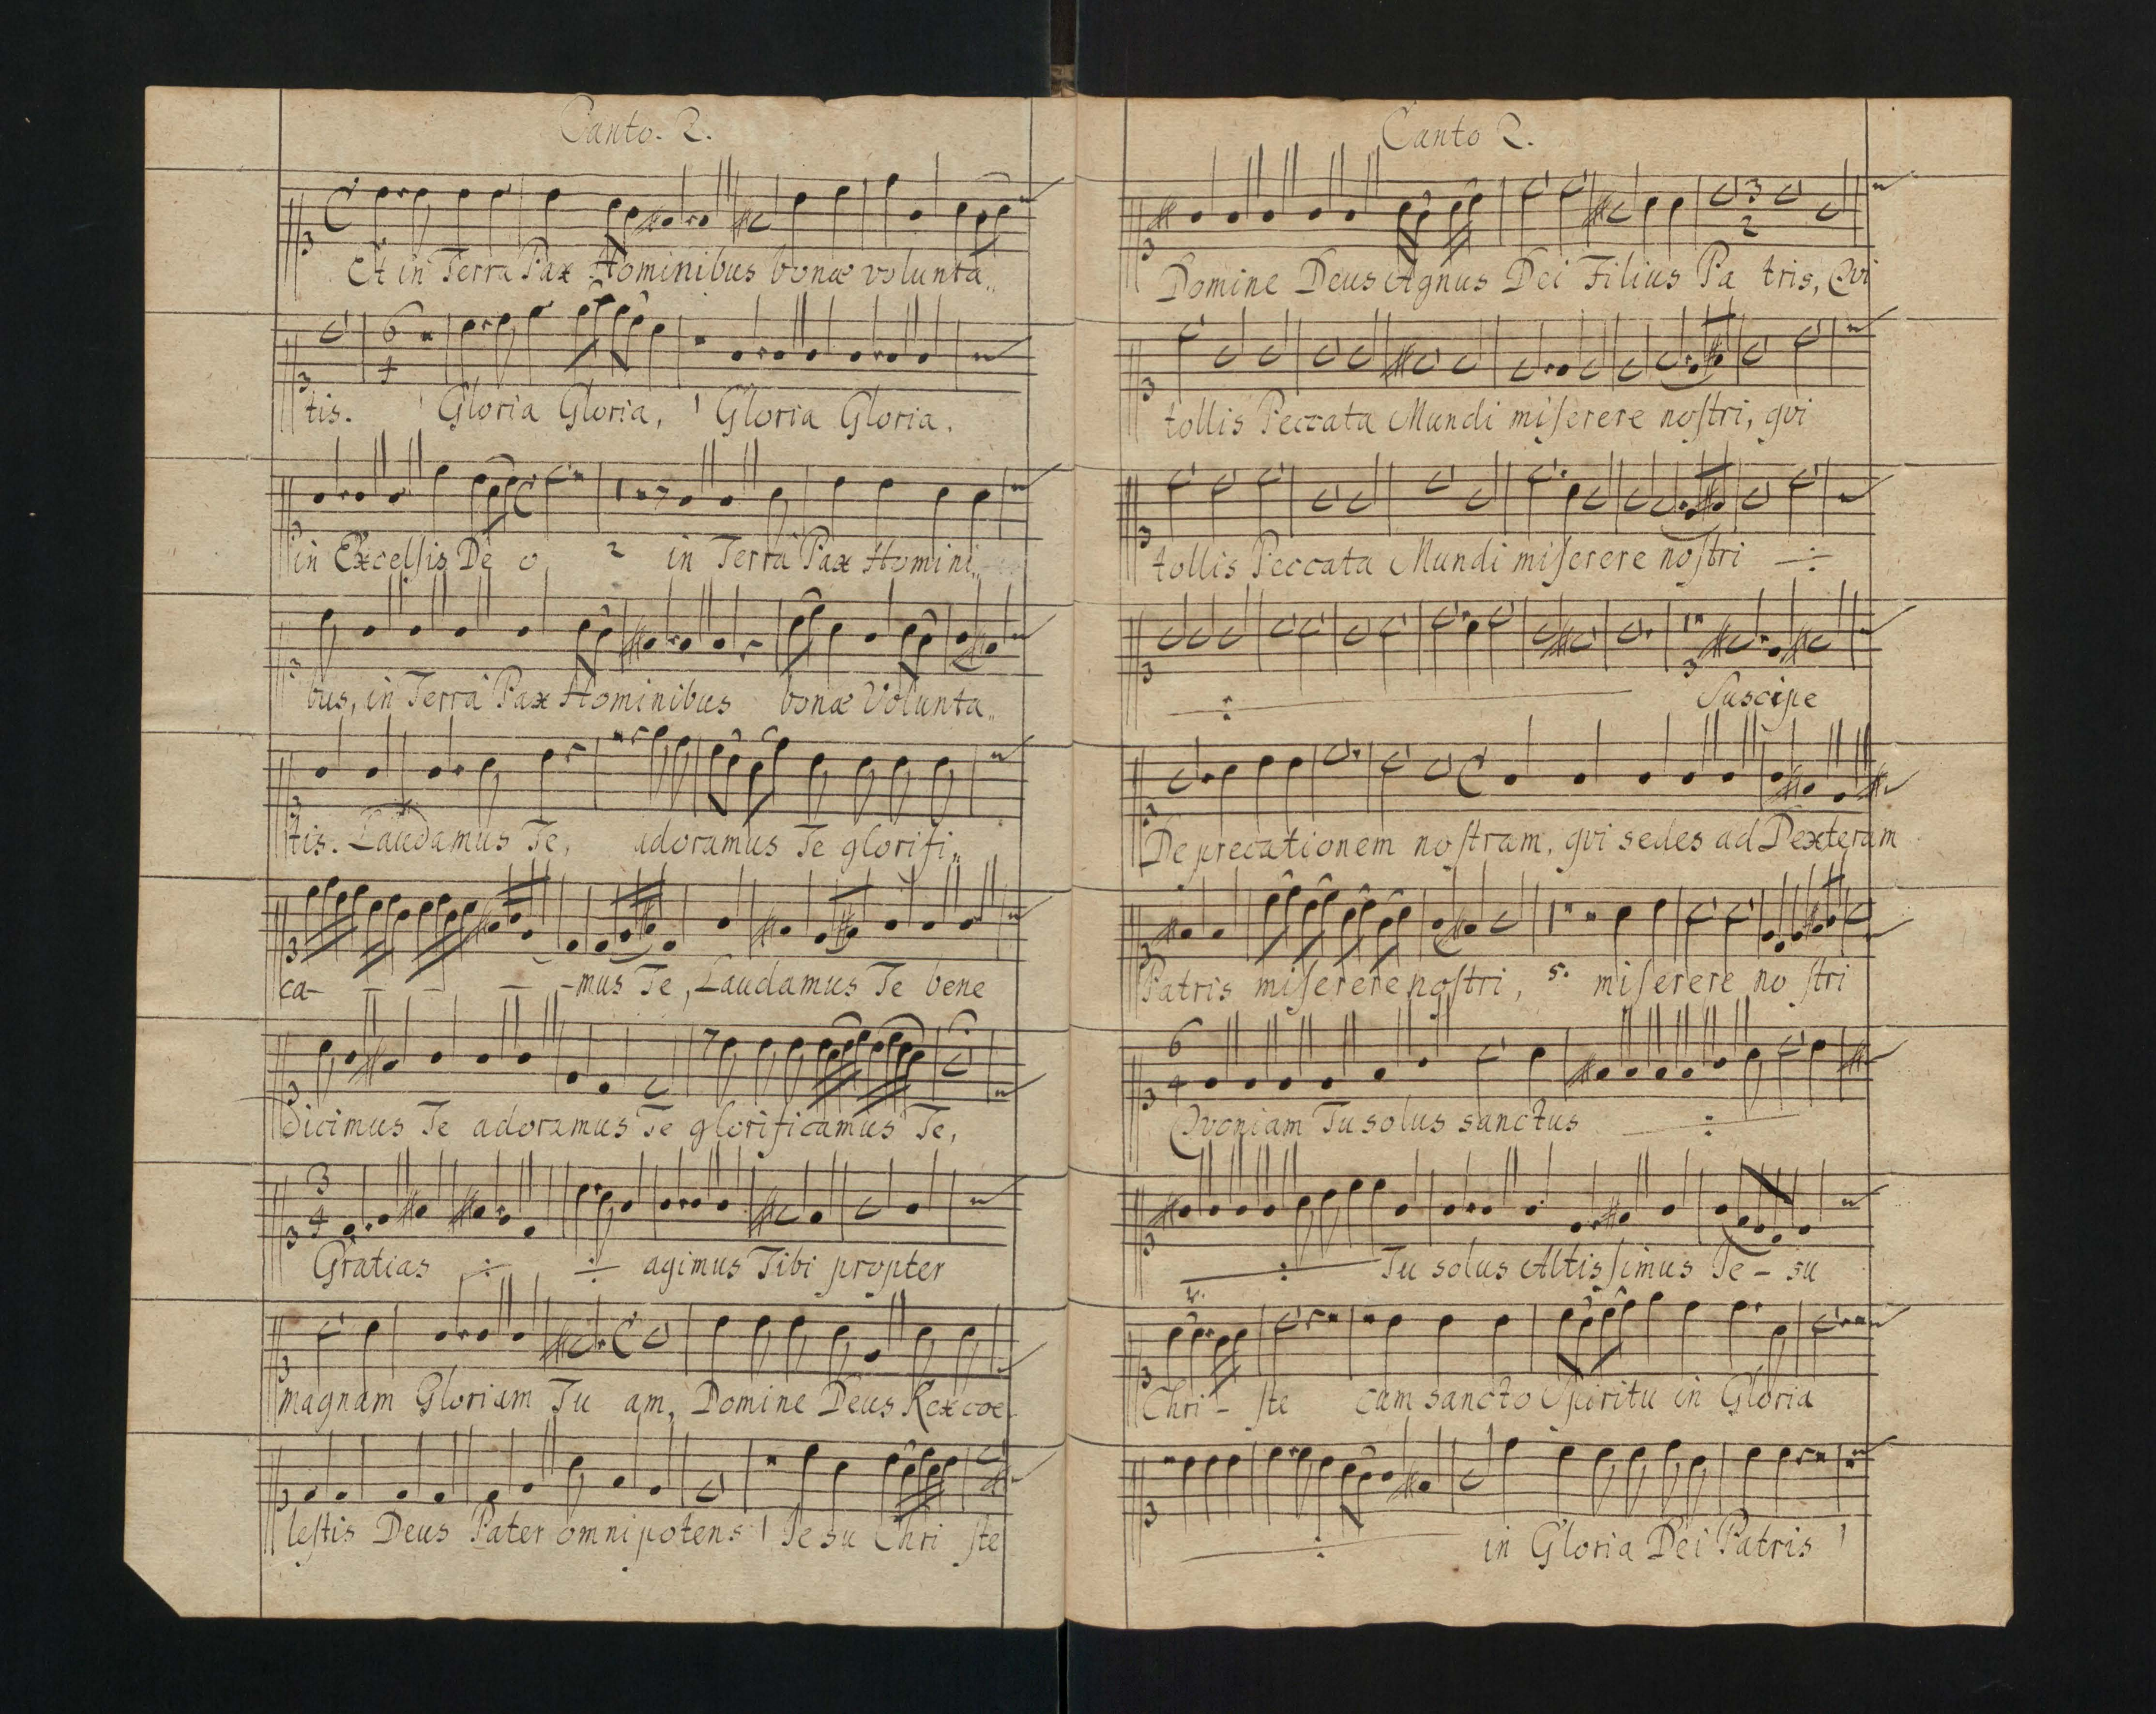 Canto. 2.
Et in Terra Pax Hominibus bonæ volunta„
tis. Gloria Gloria, Gloria Gloria.
in Excelſis De o 2 in Terra Pax Homini„
bus, in Terra Pax Hominibus bonæ Volunta„
tis. Laudamus Te, adoramus Te glorifi„
ca- - - - -mus Te, Laudamus Te bene
dicimus Te adoramus Te glorificamus Te,
Gratias ÷ ÷ agimus Tibi propter
magnam Gloriam Tu am, Domine Deus Rex coe-
leſtis Deus Pater omnipotens 1 Je su Chri ſte
Canto 2.
Domine Deus Agnus Dei Filius Pa tris, Qvi
tollis Peccata Mundi miſerere noſtri, qvi
tollis Peccata Mundi miſerere noſtri ÷
÷ Suscipe
Deprecationem noſtram, qvi sedes ad Dexteram
Patris miſerere noſtri, 5. miſerere no ſtri
Qvoniam Tu solus sanctus ÷
÷ Tu solus Altisſimus Je - su
Chri - ſte cum sancto Spiritu in Gloria
÷ in Gloria Dei Patris 1